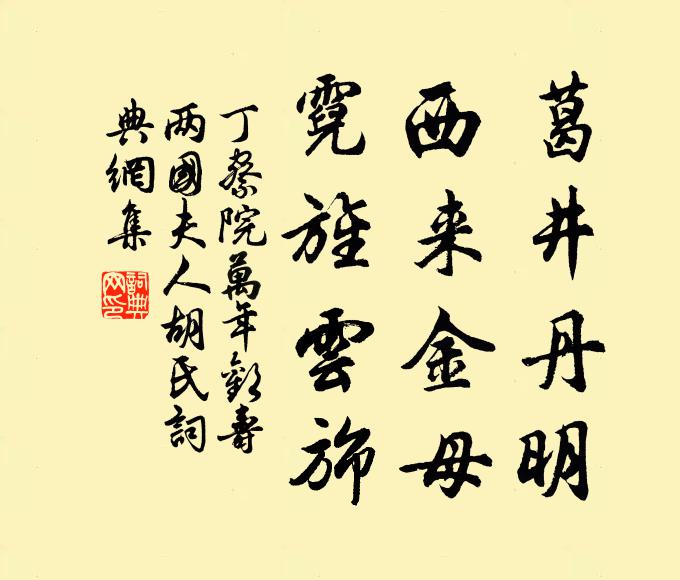 葛井丹明
西来金母
霓旌雲旆
丁察院萬年歡壽
两國夫人胡氏詞
典網集
詞典網印